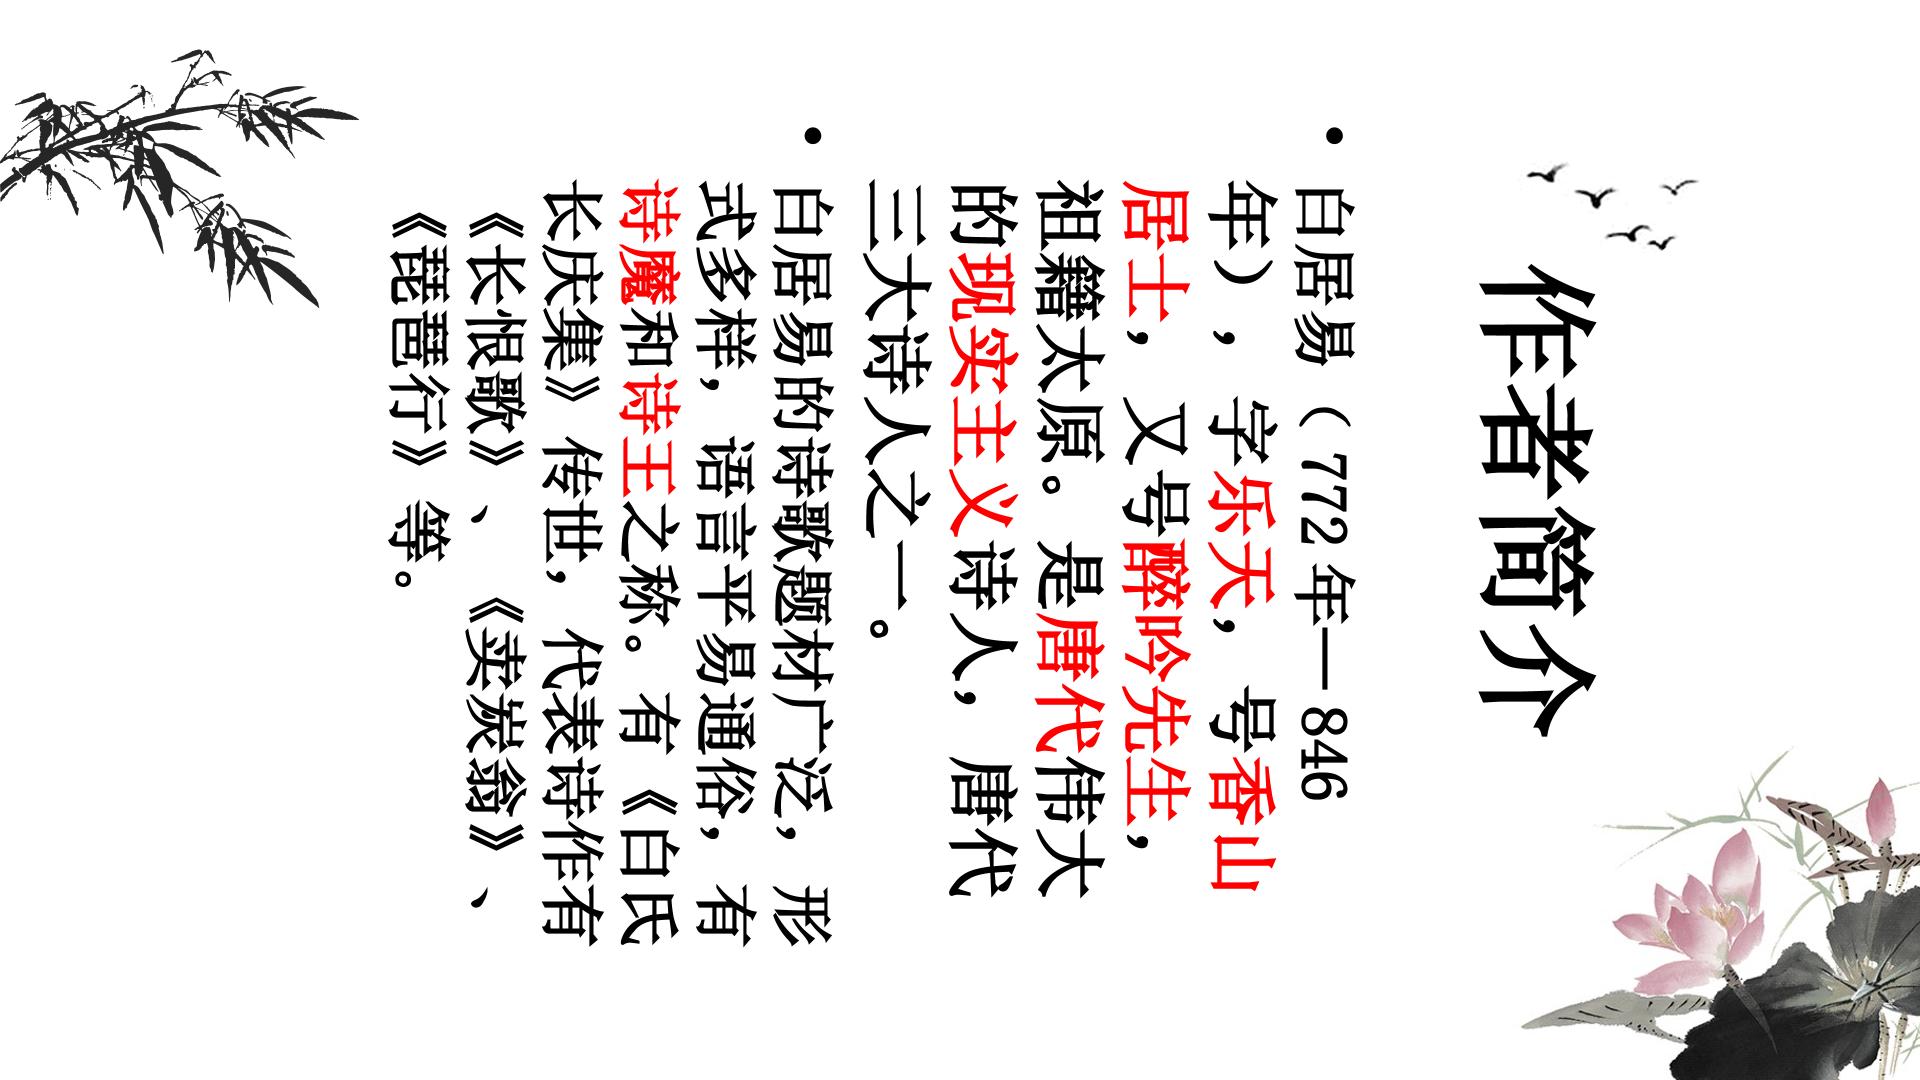 作者简介
• 白居易（772年—846
年），字乐天，号香山
居士，又号醉吟先生，
祖籍太原。是唐代伟大
的现实主义诗人，唐代
三大诗人之一。
• 白居易的诗歌题材广泛，形
式多样，语言平易通俗，有
诗魔和诗王之称。有《白氏
长庆集》传世，代表诗作有
《长恨歌》、《卖炭翁》、
《琵琶行》等。